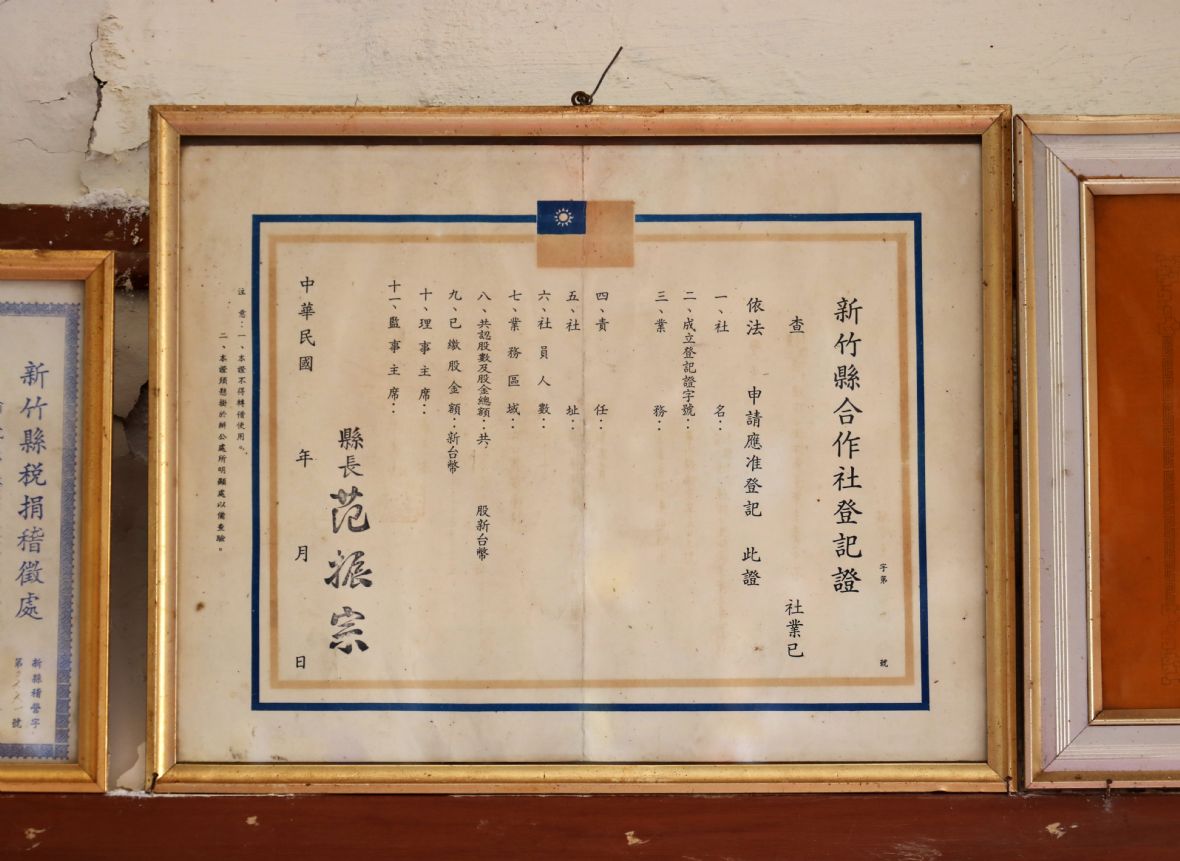 新竹縣合作社登記證
字第　號
查　社業已
依法　申請應准登記　此證
一、社名：
二、成立登記證字號：
三、業務：
四、責任
五、社址：
六、社員人數：
七、業務區域：
八、共認股數及股金總額：共　股新台幣
九、已繳股金額：新台幣
十、理事主席：
十一、監事主席：
縣長范振宗
中華民國　年　月　日
注意：一、本證不得轉借使用。
二、本證須懸掛於辦公處所明顯處以備查驗。
新竹縣稅捐稽徵處
新縣稽營字